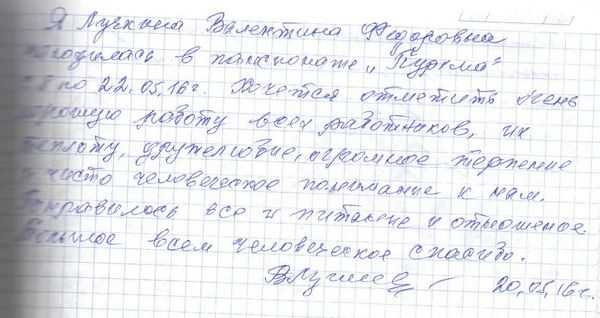 Я Лункина Валентина Федоровна
находилась в пансионате „Кудема"
с 8 по 22.05.16г. Хочется отметить очень
хорошую работу всех работников, их
теплоту, дружелюбие, огромное терпение
и чисто человеческое понимание к нам.
Понравилось все и питание и отношение.
Большое всем человеческое спасибо.
20.05.16г.